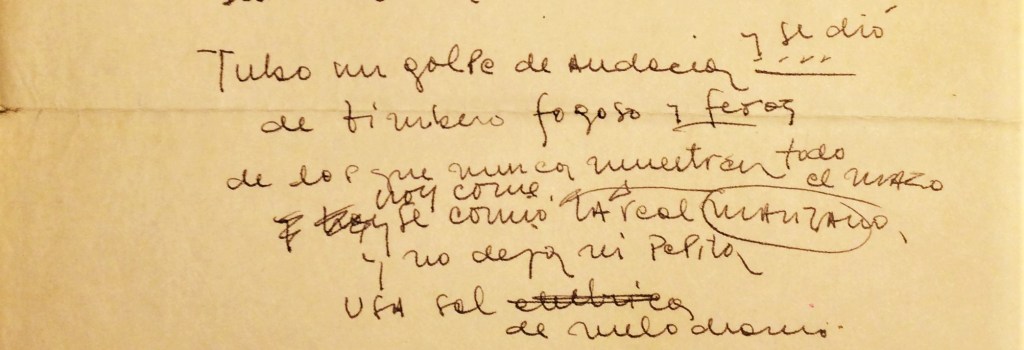 y se dió
Tubo un golpe de audacia
de timbero fogoso y feroz
de los que nunca muestran todo
el mazo
hoy come
y se comió la real manzana,
y no deja ni
USA sal
de melodrama.